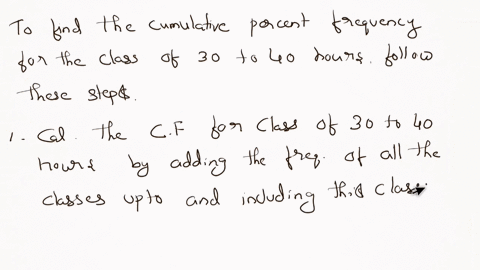 To find the cumulative percent frequency
for the class of 30 to 40 hours. follow
these steps.
1. Cal. the C.F for class of 30 to 40
hours by adding the freq. of all the
classes upto and including this class.